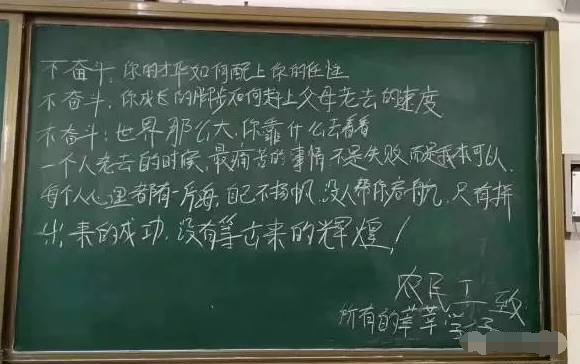 不奋斗，你的才华如何配上你的任性
不奋斗，你成长的脚步如何赶上父母老去的速度
不奋斗：世界那么大，你靠什么去看看
一个人老去的时候，最痛苦的事情不是失败，而是我本可以，
每个人心里都有一片海，自己不扬帆，没人帮你启航，只有拼
出来的成功，没有等出来的辉煌！
农民工致
所有的莘莘学子